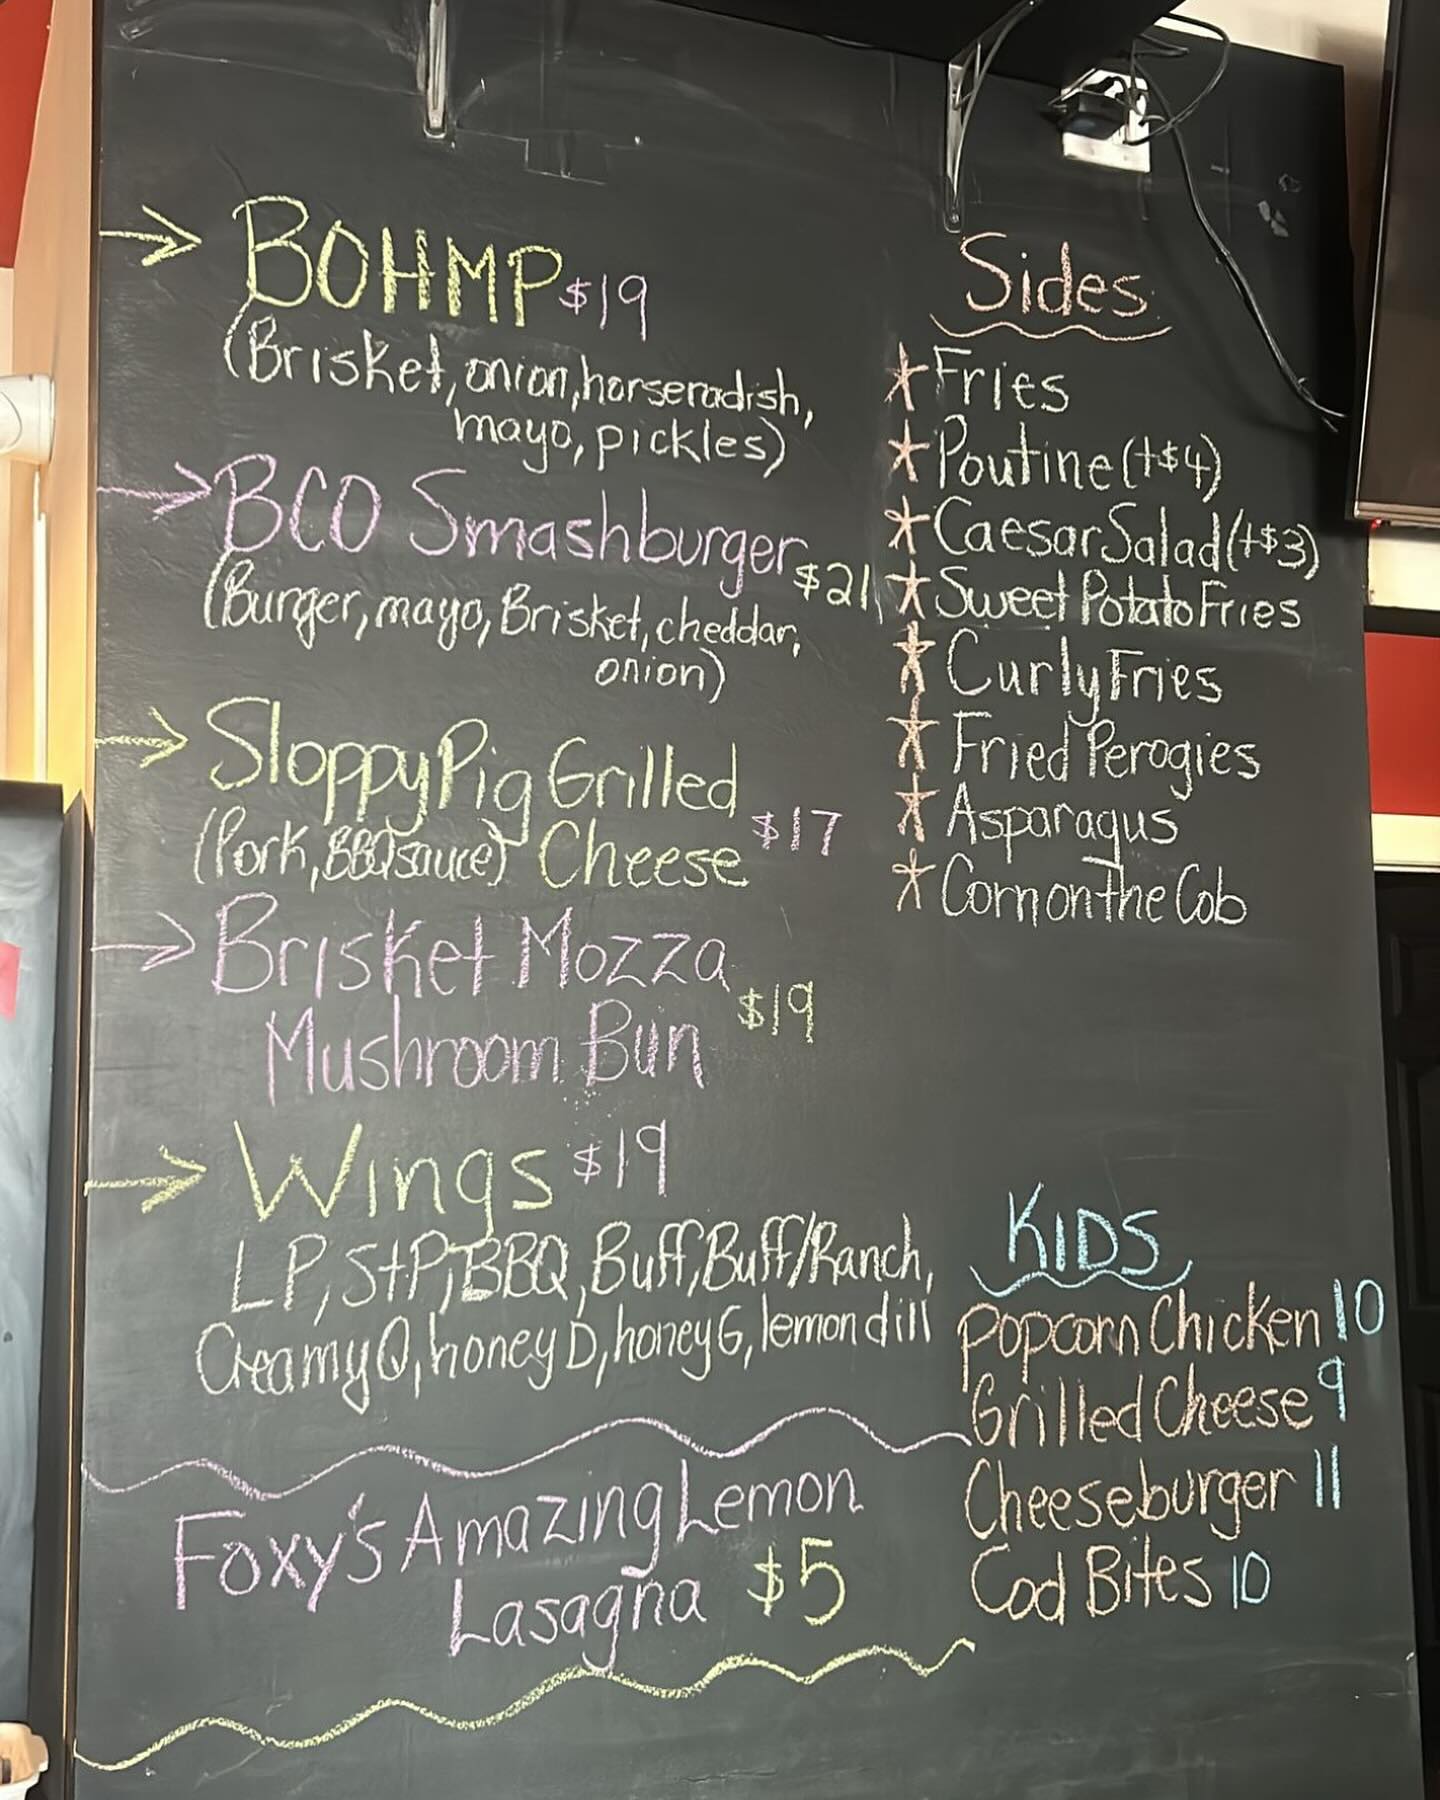 BOHMP $19
(Brisket, onion, horseradish,
mayo, pickles)
BCO Smashburger $21
(Burger, mayo, Brisket, cheddar,
onion)
Sloppy Pig Grilled
(Pork, BBQ sauce) Cheese $17
Brisket Mozza
Mushroom Bun $19
Wings $19
LP, S+P, BBQ, Buff, Buff/Ranch,
Creamy Q, honey D, honey G, lemon dill
Foxy's Amazing Lemon
Lasagna $5
Sides
Fries
Poutine (+$4)
Caesar Salad (+$3)
Sweet Potato Fries
Curly Fries
Fried Perogies
Asparagus
Corn on the Cob
KIDS
Popcorn Chicken 10
Grilled Cheese 9
Cheeseburger 11
Cod Bites 10